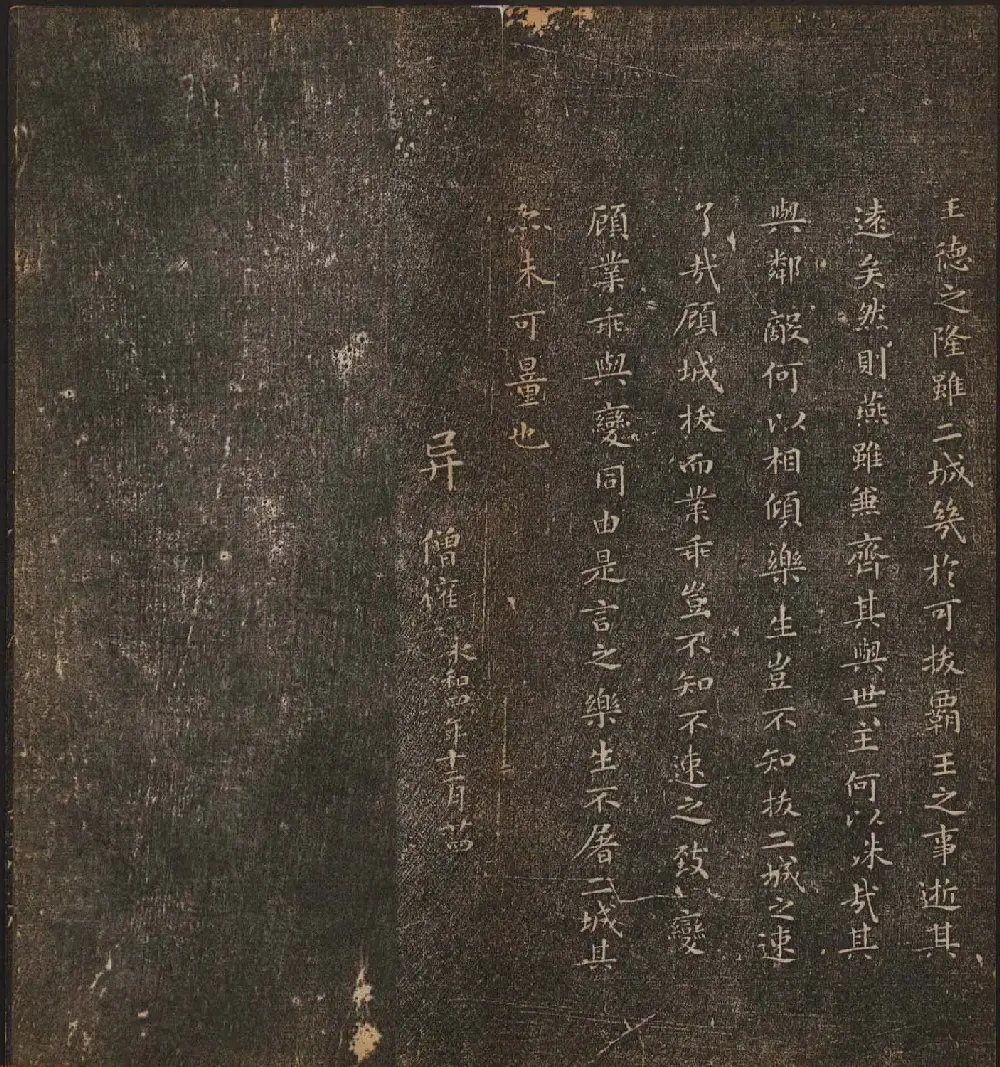 王德之隆雖二城幾於可拔霸王之事逝其
遠矣然則燕雖兼齊其與世主何以殊哉其
與鄰敵何以相傾樂生豈不知拔二城之速
了哉顧城拔而業乖豈不知不速之致變
顧業乖與變同由是言之樂生不屠二城其
亦未可量也
异 僧權 永和四年十二月